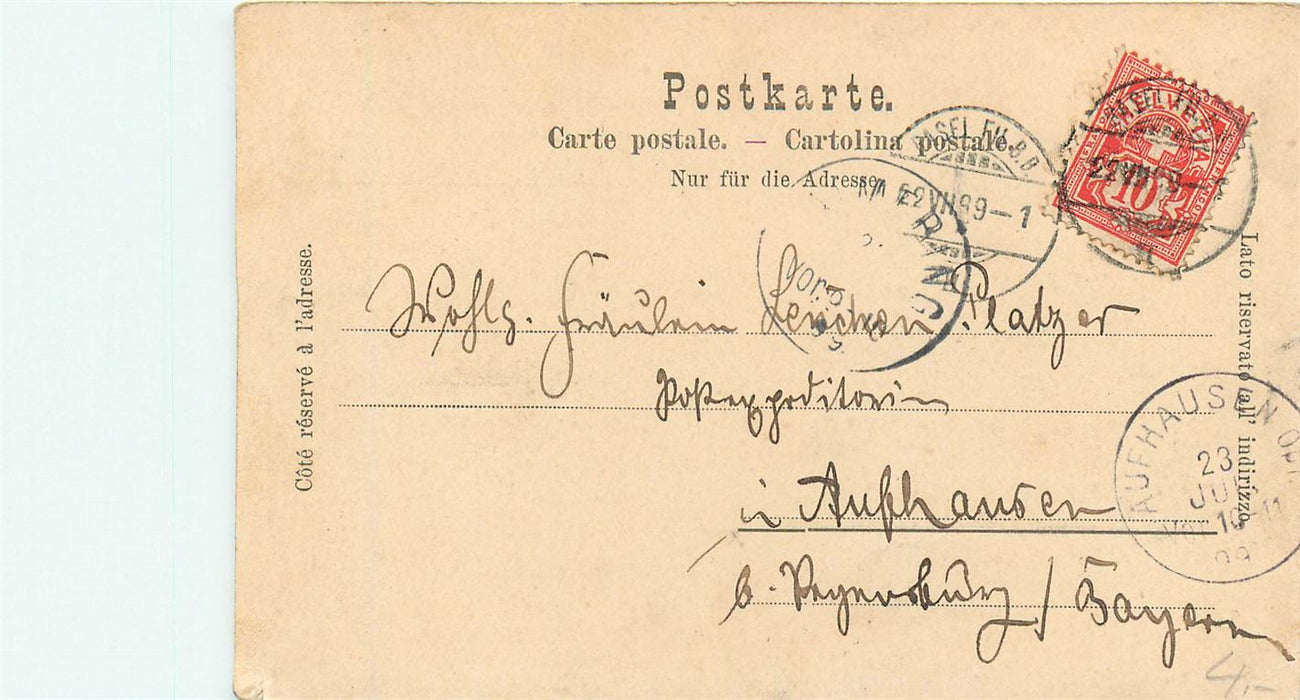 Postkarte.
Carte postale. — Cartolina postale.
Nur für die Adresse.
Côté réservé à l'adresse.
Lato riservato all' indirizzo.
BASEL
22 VII 99-1
HELVETIA
FRANCO
10
22 VII 99-
Vor.
Wohlg. Fräulein Lenchen Platzer
Postexpeditorin
in Aufhausen
b. Regensburg / Bayern
AUFHAUSEN
23
JUL
10-11
99
4,-